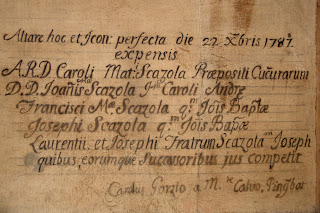 Altare hoc et Icon: perfecta die 22 Xbris 1787.
expensis
A.R.D Caroli Mat: Scazola Præpositi Cucurarum
D.D. Joañis Scazola Caroli Andre
Francisci Mæ Scazola qm Jois Baptæ
Josephi Scazola qm Jois Bapæ
Laurentii et Josephi Fratrum Scazola Joseph
quibus, eorumque Sucausoribus jus competit
Carolus Gorzio a M. Calvo, Pingbat